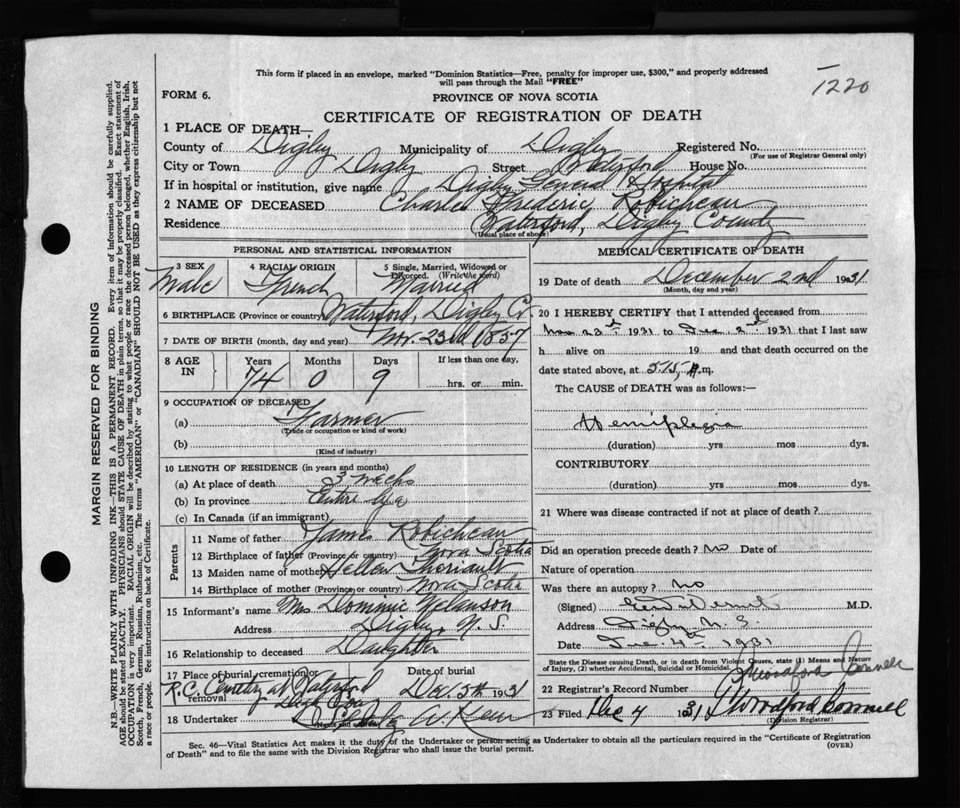 This form if placed in an envelope, marked "Dominion Statistics—Free, penalty for improper use, $300," and properly addressed
will pass through the Mail "FREE"
1220
FORM 6.
PROVINCE OF NOVA SCOTIA
CERTIFICATE OF REGISTRATION OF DEATH
1 PLACE OF DEATH—
County of Digby Municipality of Digby Registered No.
(For use of Registrar General only)
City or Town Digby Street Waterford House No.
If in hospital or institution, give name Digby General Hospital
2 NAME OF DECEASED Charles Frederic Robicheau
Residence Waterford, Digby County
(Usual place of abode)
PERSONAL AND STATISTICAL INFORMATION
3 SEX Male
4 RACIAL ORIGIN French
5 Single, Married, Widowed or Divorced. (Write the word) Married
6 BIRTHPLACE (Province or country) Waterford, Digby Co.
7 DATE OF BIRTH (month, day and year) Nov. 23rd 1857
8 AGE IN Years 74 Months 0 Days 9 If less than one day, hrs. or min.
9 OCCUPATION OF DECEASED
(a) Farmer
(Trade or occupation or kind of work)
(b)
(Kind of industry)
10 LENGTH OF RESIDENCE (in years and months)
(a) At place of death 3 weeks
(b) In province Entire
(c) In Canada (if an immigrant)
Parents
11 Name of father James Robicheau
12 Birthplace of father (Province or country) Nova Scotia
13 Maiden name of mother Theriault
14 Birthplace of mother (Province or country) Nova Scotia
15 Informant's name Mrs Dominic
Address Digby, N.S
16 Relationship to deceased Daughter
17 Place of burial, cremation or removal R.C. Cemetery at Waterford
Date of burial Dec. 5th 1931
18 Undertaker
MEDICAL CERTIFICATE OF DEATH
19 Date of death December 2nd 1931
(Month, day and year)
20 I HEREBY CERTIFY that I attended deceased from
Nov 23rd 1931 to Dec. 2nd 1931 that I last saw
h alive on 19 and that death occurred on
date stated above, at 5.15 m.
The CAUSE of DEATH was as follows:
Hemiplegia
(duration) yrs mos dys.
CONTRIBUTORY
(duration) yrs mos dys.
21 Where was disease contracted if not at place of death?
Did an operation precede death? No Date of
Nature of operation
Was there an autopsy? No
(Signed) M.D.
Address Digby N.S.
Date Dec. 4th 1931
State the Disease causing Death, or in death from Violent Causes, state (1) Means and Nature
of Injury, (2) whether Accidental, Suicidal or Homicidal.
22 Registrar's Record Number
23 Filed Dec 4 1931
(Division Registrar)
Sec. 46—Vital Statistics Act makes it the duty of the Undertaker or person acting as Undertaker to obtain all the particulars required in the "Certificate of Registration
of Death" and to file the same with the Division Registrar who shall issue the burial permit.
(OVER)
MARGIN RESERVED FOR BINDING
N.B.—WRITE PLAINLY WITH UNFADING INK—THIS IS A PERMANENT RECORD. Every item of information should be carefully supplied.
AGE should be stated EXACTLY. PHYSICIANS should STATE CAUSE OF DEATH in plain terms, so that it may be properly classified. Exact statement of
OCCUPATION is very important. RACIAL ORIGIN will be described by stating to what people or race the deceased person belonged, whether English, Irish,
Scotch, French, German, Russian, Ruthenian, etc. The terms "AMERICAN" or "CANADIAN" SHOULD NOT BE USED as they express citizenship but not
a race or people. Fee instructions on back of Certificate.